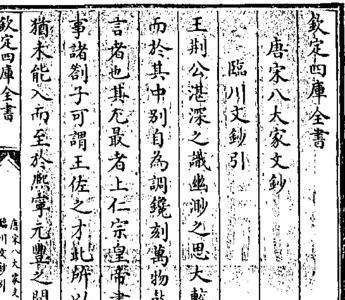 欽定四庫全書
唐宋八大家文鈔
臨川文鈔引
王荆公湛深之識幽渺之思大較
而於其中别自為調鑱刻萬物
言者也其尤最者上仁宗皇帝書
事諸劄子可謂王佐之才此所以
猶未能入而至於熙寧元豐之間
欽定四庫全書
唐宋八大家文
臨川文鈔引